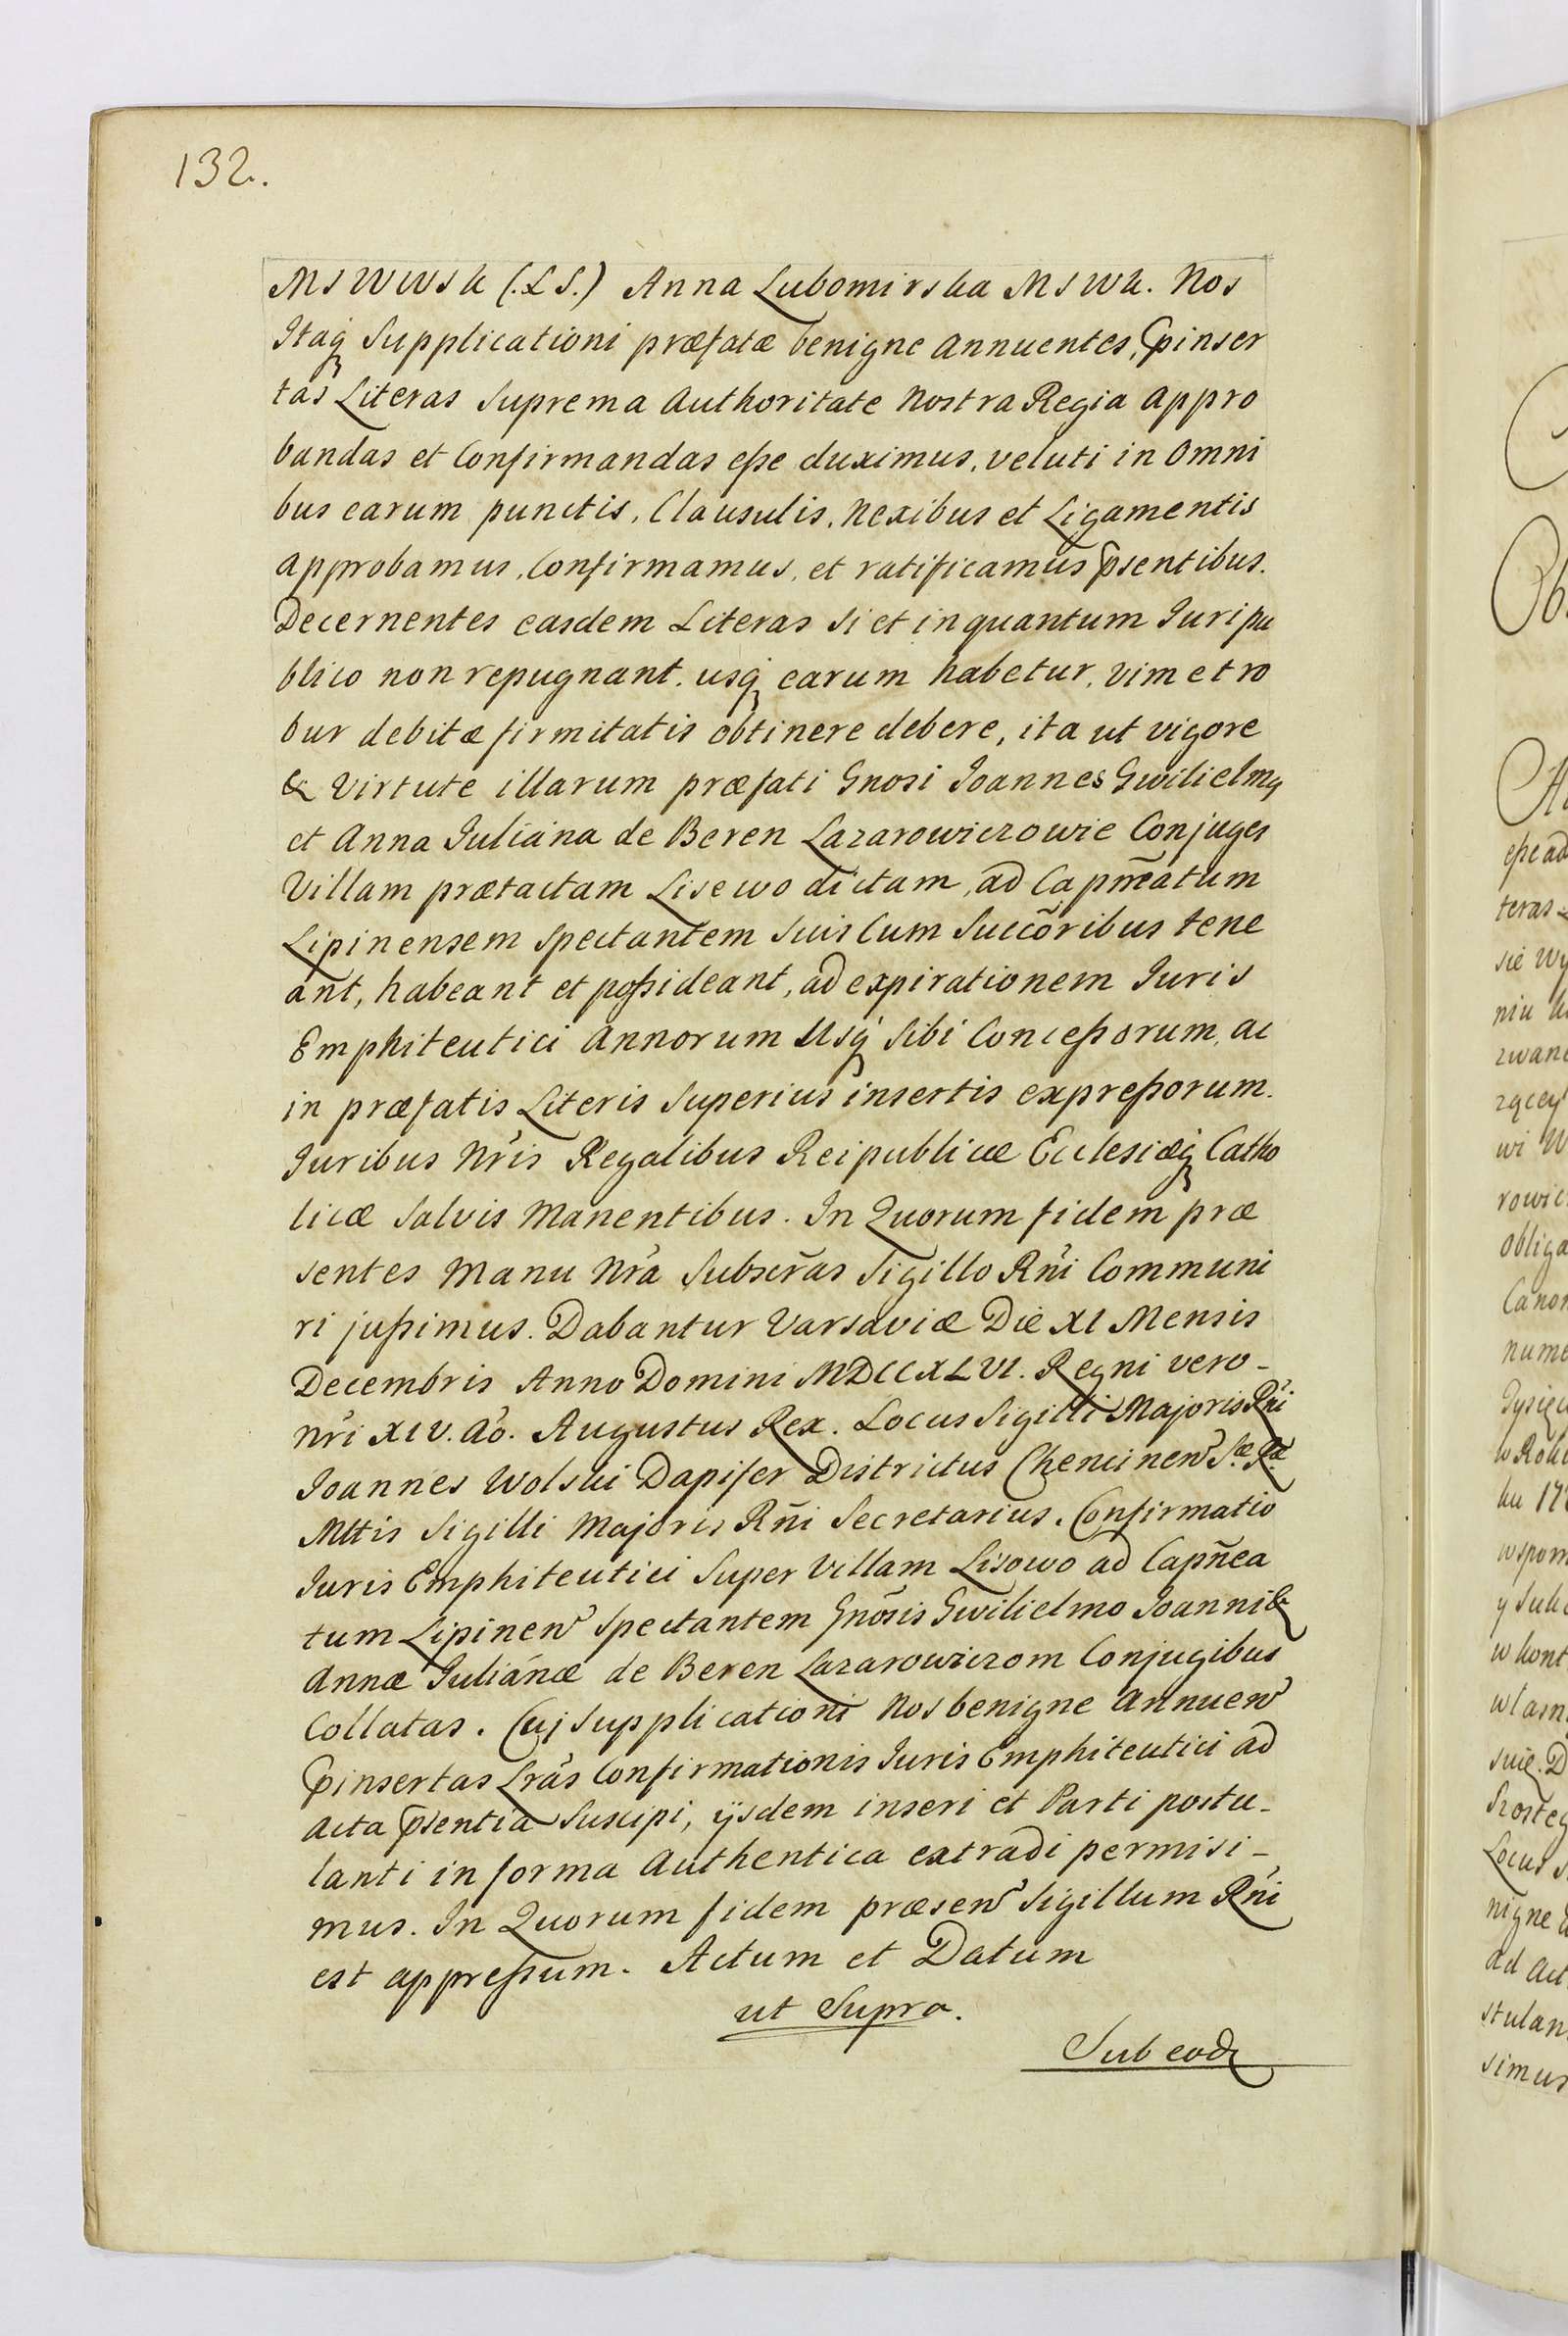 132.
MSWWSk (.LS.) Anna Lubomirska MSWk. Nos
Itaqꝫ Supplicationi præfatæ benigne Annuentes, p̃inser
tas Literas Suprema Authoritate Nostra Regia appro
bandas et Confirmandas eße duximus, veluti in Omni
bus earum punctis, Clausulis, Nexibus et Ligamentis
approbamus, Confirmamus, et ratificamus p̃sentibus.
Decernentes easdem Literas Si et inquantum Juri pu
blico non repugnant, usqꝫ earum habetur, vim et ro
bur debitæ firmitatis obtinere debere, ita ut vigore
& Virtute illarum præfati Gnosi Joannes Gwilielmꝯ
et Anna Juliana de Beren Lazarowiczowie Conjuges
Villam prætactam Lisewo dictam, ad Capn̄eatum
Lipinensem Spectantem Suis Cum Succõribus tene
ant, habeant et poßideant, ad expirationem Juris
Emphiteutici Annorum Usqꝫ Sibi Conceßorum, ac
in præfatis Literis Superius insertis expreßorum.
Juribus Nr̃is Regalibus Reipublicæ Ecclesiæqꝫ Catho
licæ Salvis Manentibus. In Quorum fidem præ
sentes Manu Nr̃a Subscr̃as Sigillo Rñi Communi
ri jußimus. Dabantur Varsaviæ Die XI Mensis
Decembris Anno Domini MDCCXLVI. Regni vero-
Nr̃i XIV. Ao. Augustus Rex. Locus Sigilli Majoris Rñi
Joannes Wolski Dapifer Districtus Chencinen Sæ Ræ
Mttis Sigilli Majoris Rñi Secretarius. Confirmatio
Juris Emphiteutici Super Villam Lisowo ad Capñea
tum Lipinen Spectantem Gnõsis Gwilielmo Joanni &
Annæ Julianæ de Beren Lazarowiczom Conjugibus
Collatas. Cuj Supplicationi Nos benigne Annuen
p̃insertas Lrãs Confirmationis Juris Emphiteutici ad
Acta p̃sentia Suscipi, ijsdem inseri et Parti postu-
lanti in forma Authentica extradi permisi-
mus. In Quorum fidem præsen Sigillum Rñi
est appreßum. Actum et Datum
ut Supra.
Sub eod
eße ad
teras
sie wy
niu
zwane
zącey
wi W
rowic
obliga
Canon
nume
Tysięc
w Roku
ku 17
wspom
y Suk
w kont
wlasn
suię. D
Locus S
nigne
ad Act
stulan
simus